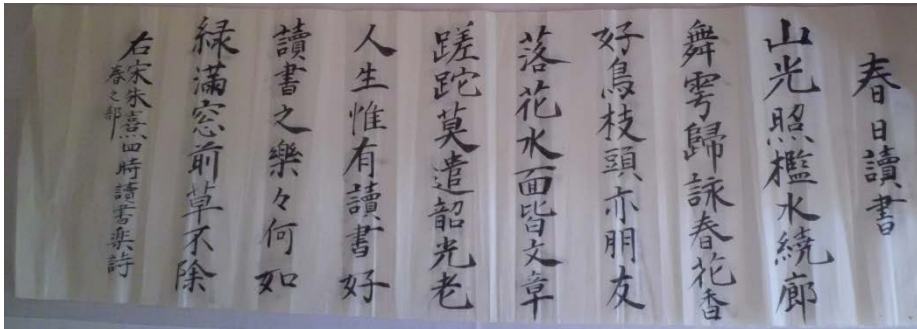 春日讀書
山光照檻水繞廊
舞雩歸詠春花香
好鳥枝頭亦朋友
落花水面皆文章
蹉跎莫遣韶光老
人生惟有讀書好
讀書之樂々何如
緑滿窓前草不除
右宋朱熹四時讀書楽詩
春之部